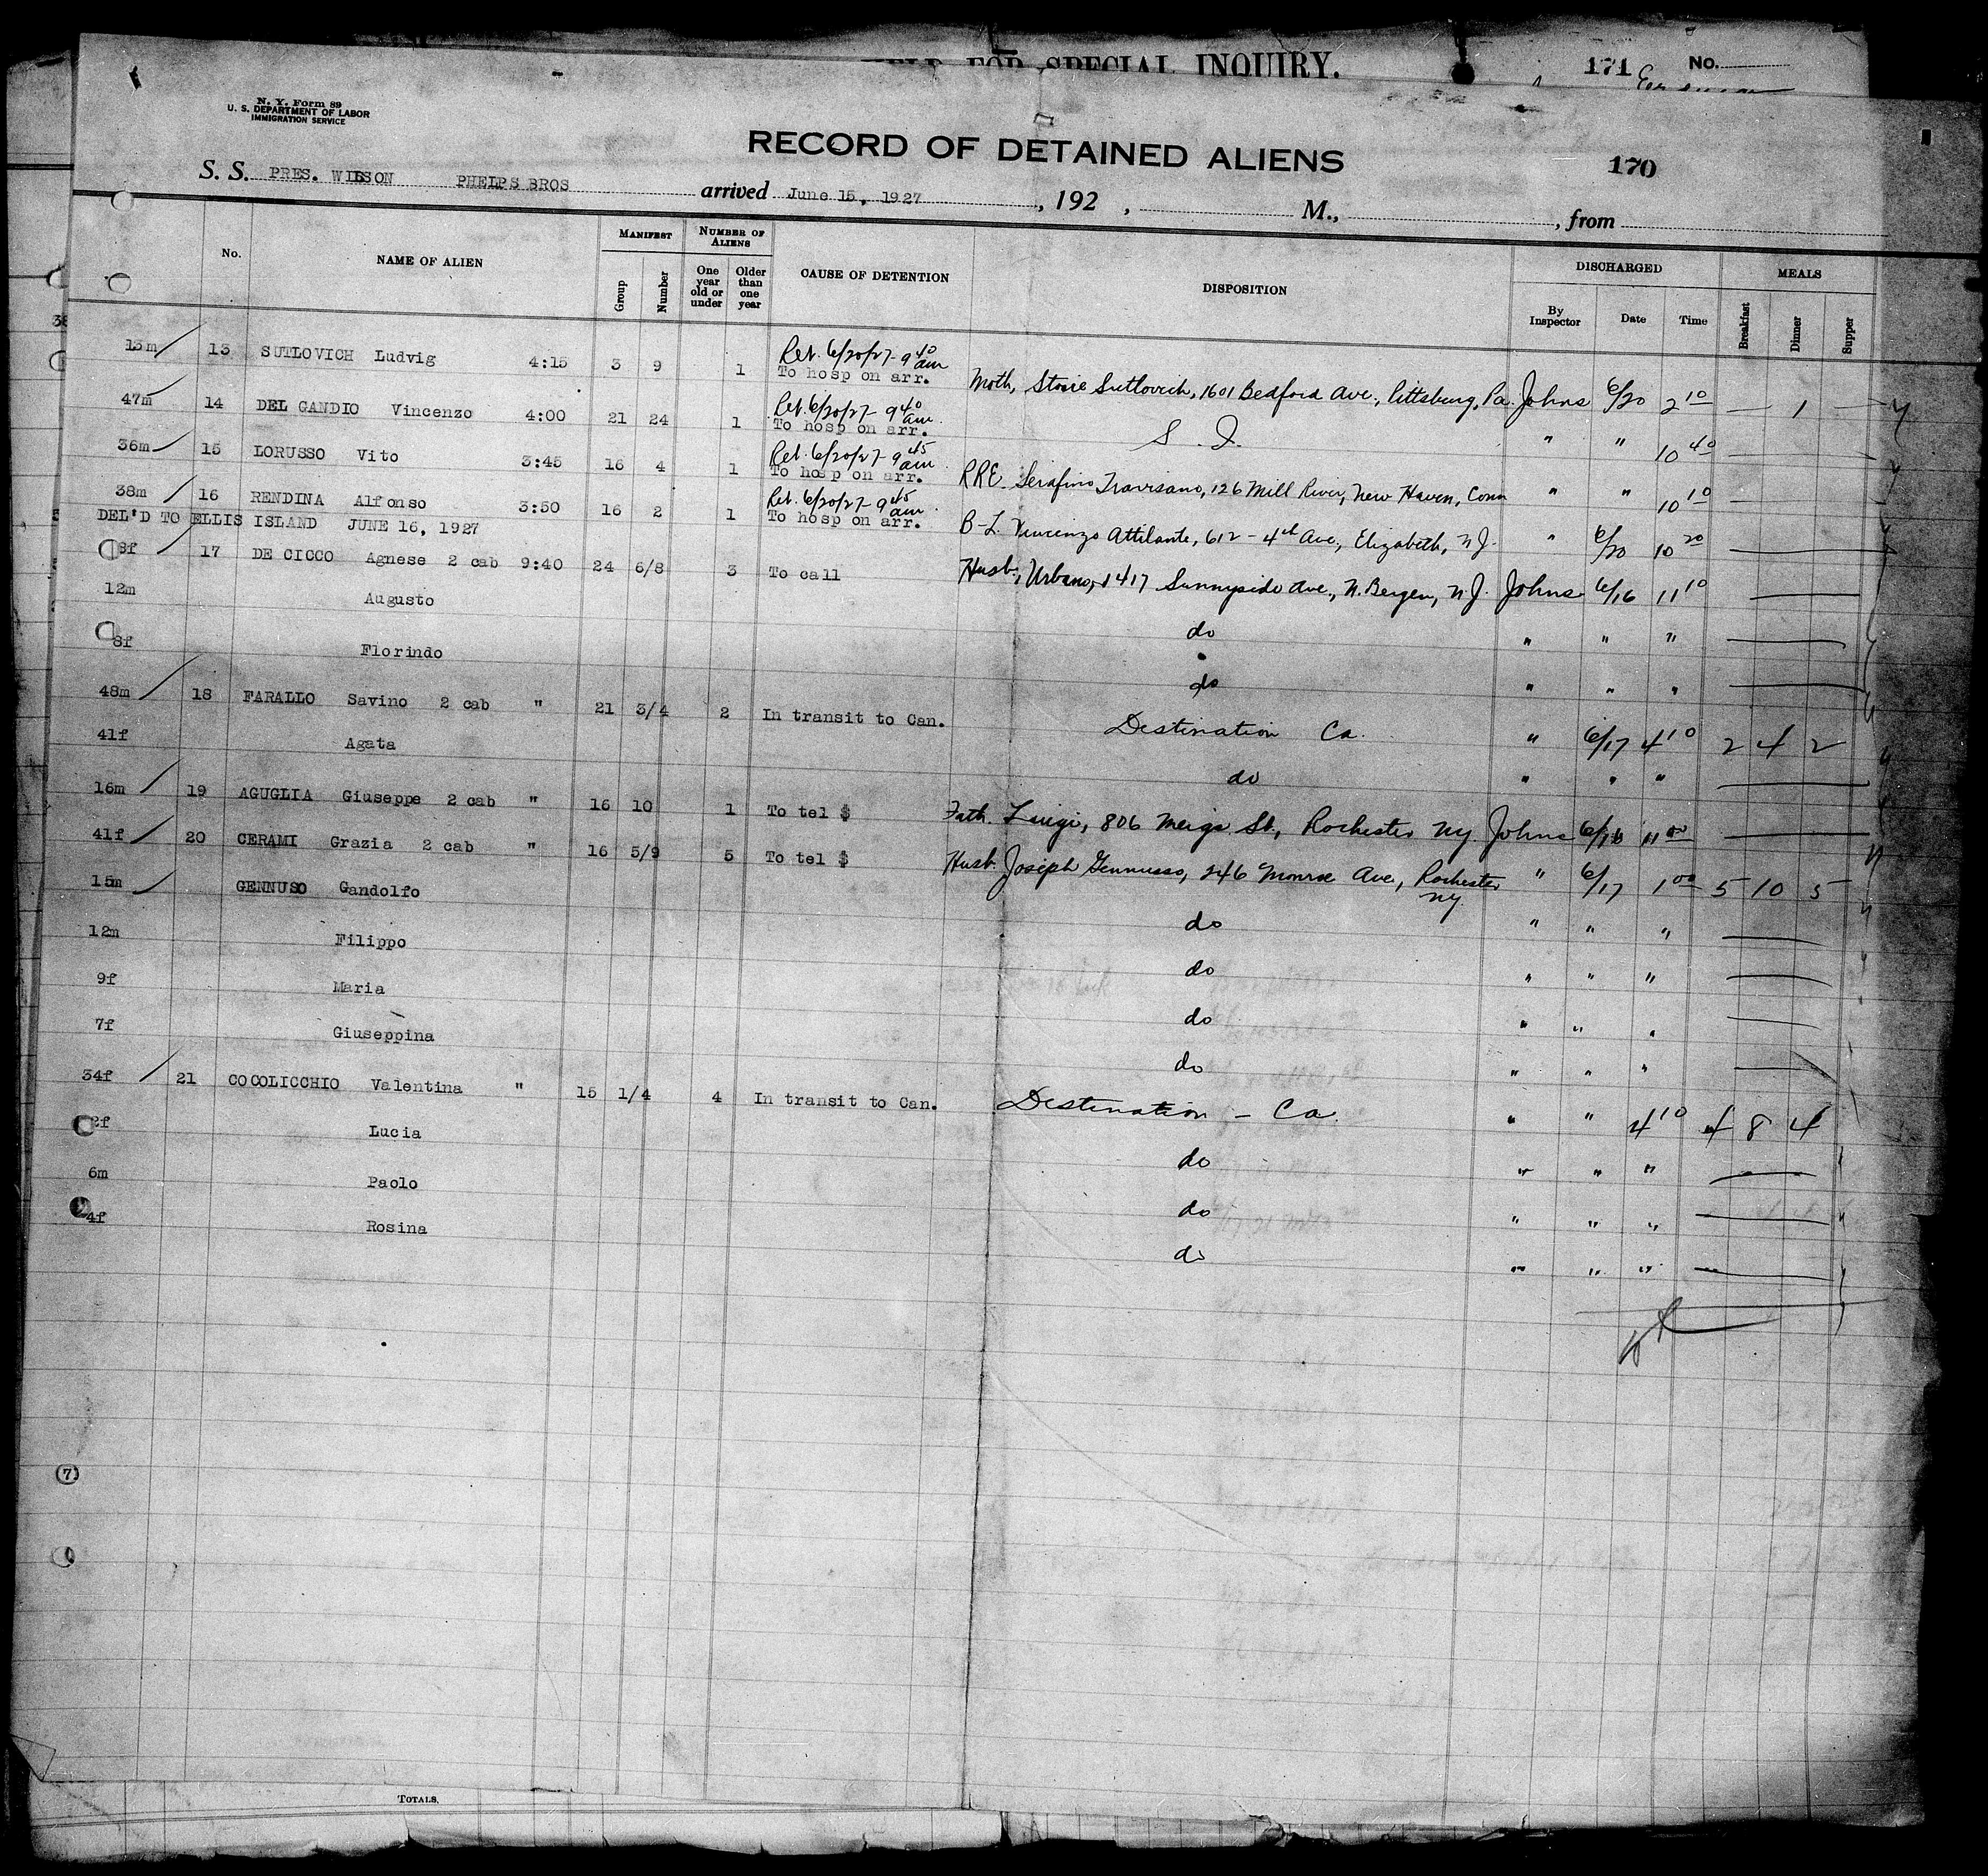 FOR SPECIAL INQUIRY. 171 No.
N. Y. Form 89
U. S. DEPARTMENT OF LABOR
IMMIGRATION SERVICE
RECORD OF DETAINED ALIENS 170
S. S. PRES. WILSON PHELPS BROS arrived June 15, 1927, 192 , M., , from
No. NAME OF ALIEN MANIFEST Group Number NUMBER OF ALIENS One year old or under Older than one year CAUSE OF DETENTION DISPOSITION DISCHARGED By Inspector Date Time MEALS Breakfast Dinner Supper
13m 13 SUTLOVICH Ludvig 4:15 3 9 1 Ret. 6/20/27-9 40 am To hosp on arr. Moth, Stosie Sutlovich, 1601 Bedford Ave., Pittsburg, Pa. Johns 6/20 2 10 — 1 —
47m 14 DEL GANDIO Vincenzo 4:00 21 24 1 Ret. 6/20/27-9 40 am. To hosp on arr. S. I. " " 10 40 —
36m 15 LORUSSO Vito 3:45 16 4 1 Ret. 6/20/27-9 45 am. To hosp on arr. RRE. Serafino Travisano, 126 Mill River, New Haven, Conn " " 10 10 —
38m 16 RENDINA Alfonso 3:50 16 2 1 Ret. 6/20/27-9 45 am. To hosp on arr. B-L. Vincenzo Attilante, 612-4th Ave., Elizabeth, N.J. " 6/20 10 20 —
DEL'D TO ELLIS ISLAND JUNE 16, 1927
17 DE CICCO Agnese 2 cab 9:40 24 6/8 3 To call Husb., Urbano, 1417 Sunnyside Ave., N. Bergen, N.J. Johns 6/16 11 10 —
12m Augusto do " " " —
8f Florindo do " " " —
48m 18 FARALLO Savino 2 cab " 21 3/4 2 In transit to Can. Destination Ca. " 6/17 4 10 2 4 2
41f Agata do " " " —
16m 19 AGUGLIA Giuseppe 2 cab " 16 10 1 To tel $ Fath. Luigi, 806 Meigs St., Rochester NY. Johns 6/16 11 00 —
41f 20 CERAMI Grazia 2 cab " 16 5/9 5 To tel $ Husb. Joseph Gennusso, 246 Monroe Ave., Rochester NY. " 6/17 1 00 5 10 5
15m GENNUSO Gandolfo do " " " —
12m Filippo do " " " —
9f Maria do " " " —
7f Giuseppina do " " " —
34f 21 COCOLICCHIO Valentina " 15 1/4 4 In transit to Can. Destination - Ca. " " 4 10 4 8 4
2f Lucia do " " " —
6m Paolo do " " " —
4f Rosina do " " " —
7
TOTALS.